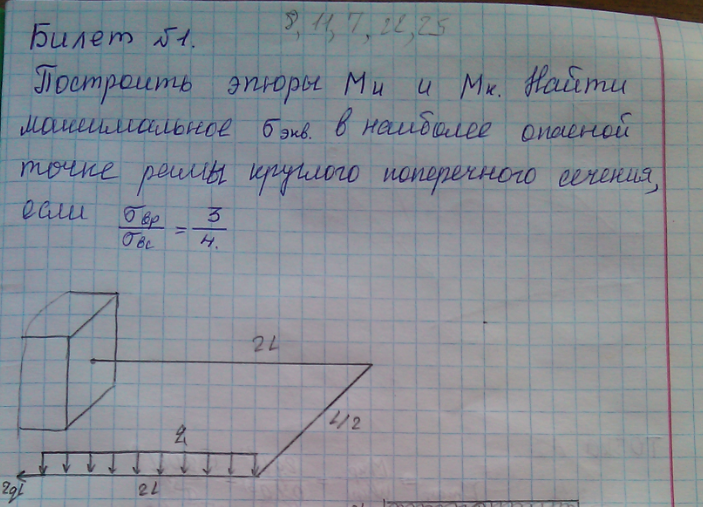 8, 11, 7, 22, 25
Билет №1.
Построить эпюры Mи и Mк. Найти
максимальное σэкв. в наиболее опасной
точке рамы круглого поперечного сечения,
если σвр/σвс = 3/4.
2L
L/2
q
2qL
2L